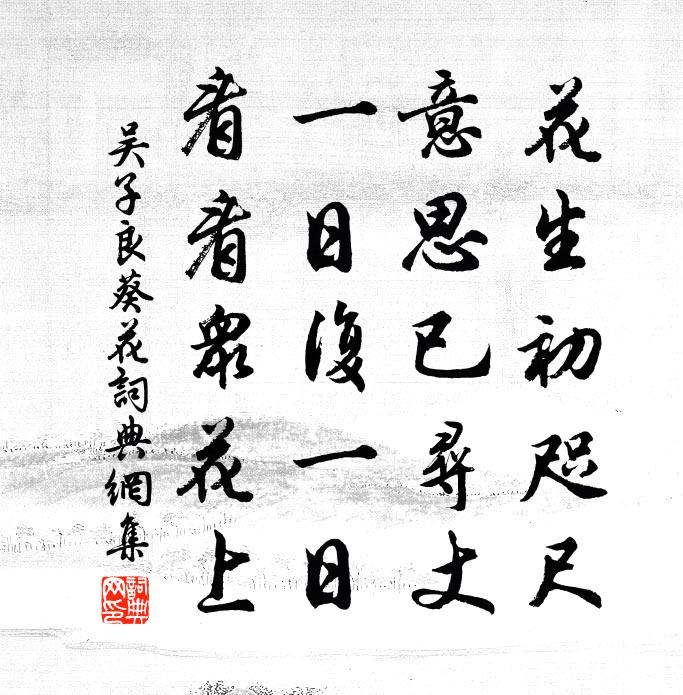 花生初咫尺
意思已尋丈
一日復一日
看看眾花上
吳子良葵花詞典網集
詞典网印